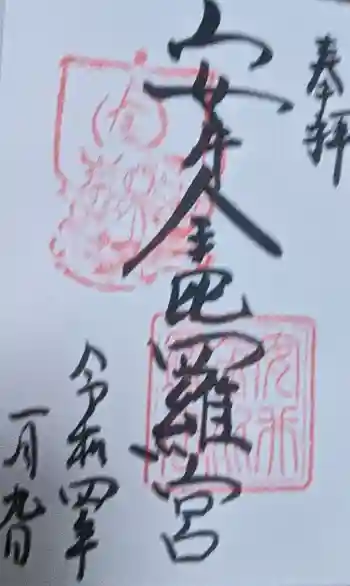 奉拝
安井金毘羅宮
令和四年
一月九日